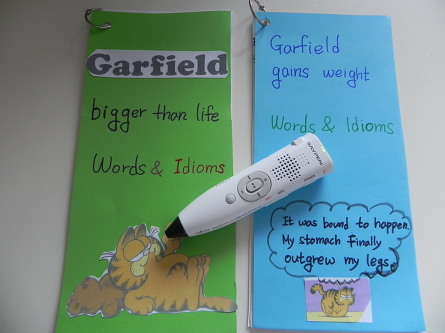 Garfield
bigger than life
Words & Idioms
Garfield
gains weight
Words & Idioms
It was bound to happen.
My stomach Finally
outgrew my legs.